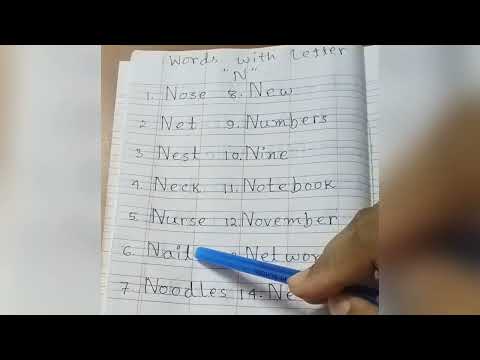 Words with letter
"N"
1. Nose 8. New
2 Net 9. Numbers
3 Nest 10. Nine
4. Neck 11. Notebook
5. Nurse 12. November
6. Nail
7. Noodles 14.